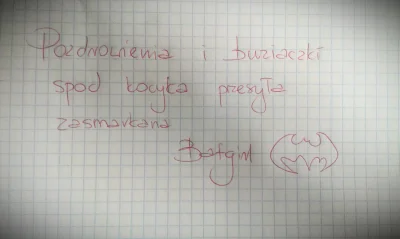 Pozdrowienia i buziaczki
spod kocyka przesyła
zasmarkana
Batgirl